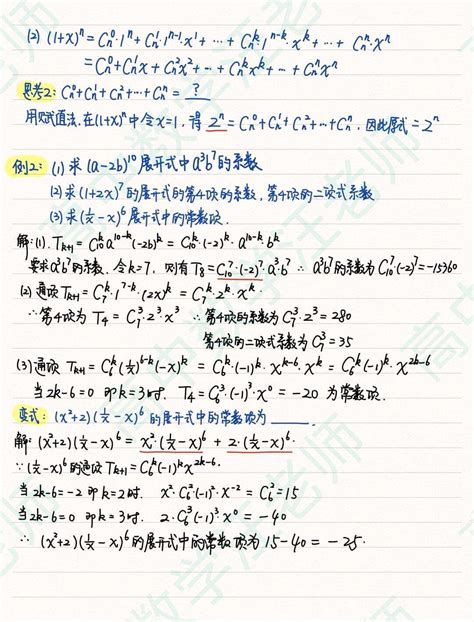 (2) (1+x)^n = C_n^0·1^n + C_n^1·1^{n-1}·x^1 + ··· + C_n^k·1^{n-k}·x^k + ··· + C_n^n·x^n
= C_n^0 + C_n^1x + C_n^2x^2 + ··· + C_n^kx^k + ··· + C_n^nx^n
思考2: C_n^0+C_n^1+C_n^2+···+C_n^n = ?
用赋值法,在(1+x)^n中令x=1,得 2^n = C_n^0+C_n^1+C_n^2+···+C_n^n,因此原式=2^n
例2: (1) 求(a-2b)^10展开式中a^3b^7的系数
(2) 求(1+2x)^7的展开式的第4项的系数,第4项的二项式系数
(3) 求(1/x-x)^6展开式中的常数项.
解:(1). T_{k+1} = C_10^k a^{10-k}(-2b)^k = C_10^k·(-2)^k·a^{10-k}·b^k
要求a^3b^7的系数,令k=7,则有T_8=C_10^7·(-2)^7·a^3·b^7 ∴ a^3b^7的系数为C_10^7·(-2)^7=-15360
(2) 通项T_{k+1} = C_7^k·1^{7-k}·(2x)^k = C_7^k·2^k·x^k.
∴第4项为 T_4 = C_7^3·2^3·x^3 ∴第4项的系数为C_7^3·2^3=280
第4项的二项式系数为C_7^3=35
(3) 通项 T_{k+1} = C_6^k(1/x)^{6-k}(-x)^k = C_6^k·(-1)^k·x^{k-6}·x^k = C_6^k(-1)^k·x^{2k-6}
当2k-6=0 即k=3时. T_4=C_6^3(-1)^3·x^0 = -20 为常数项.
变式: (x^2+2)(1/x-x)^6的展开式中的常数项为
解: (x^2+2)(1/x-x)^6 = x^2·(1/x-x)^6 + 2·(1/x-x)^6.
∵(1/x-x)^6的通项T_{k+1}=C_6^k(-1)^kx^{2k-6}.
当2k-6=-2即k=2时. x^2·C_6^2(-1)^2·x^{-2}=C_6^2=15
当2k-6=0 即k=3时. 2·C_6^3(-1)^3·x^0=-40
∴ (x^2+2)(1/x-x)^6的展开式中的常数项为15-40=-25.
高中数学汪老师